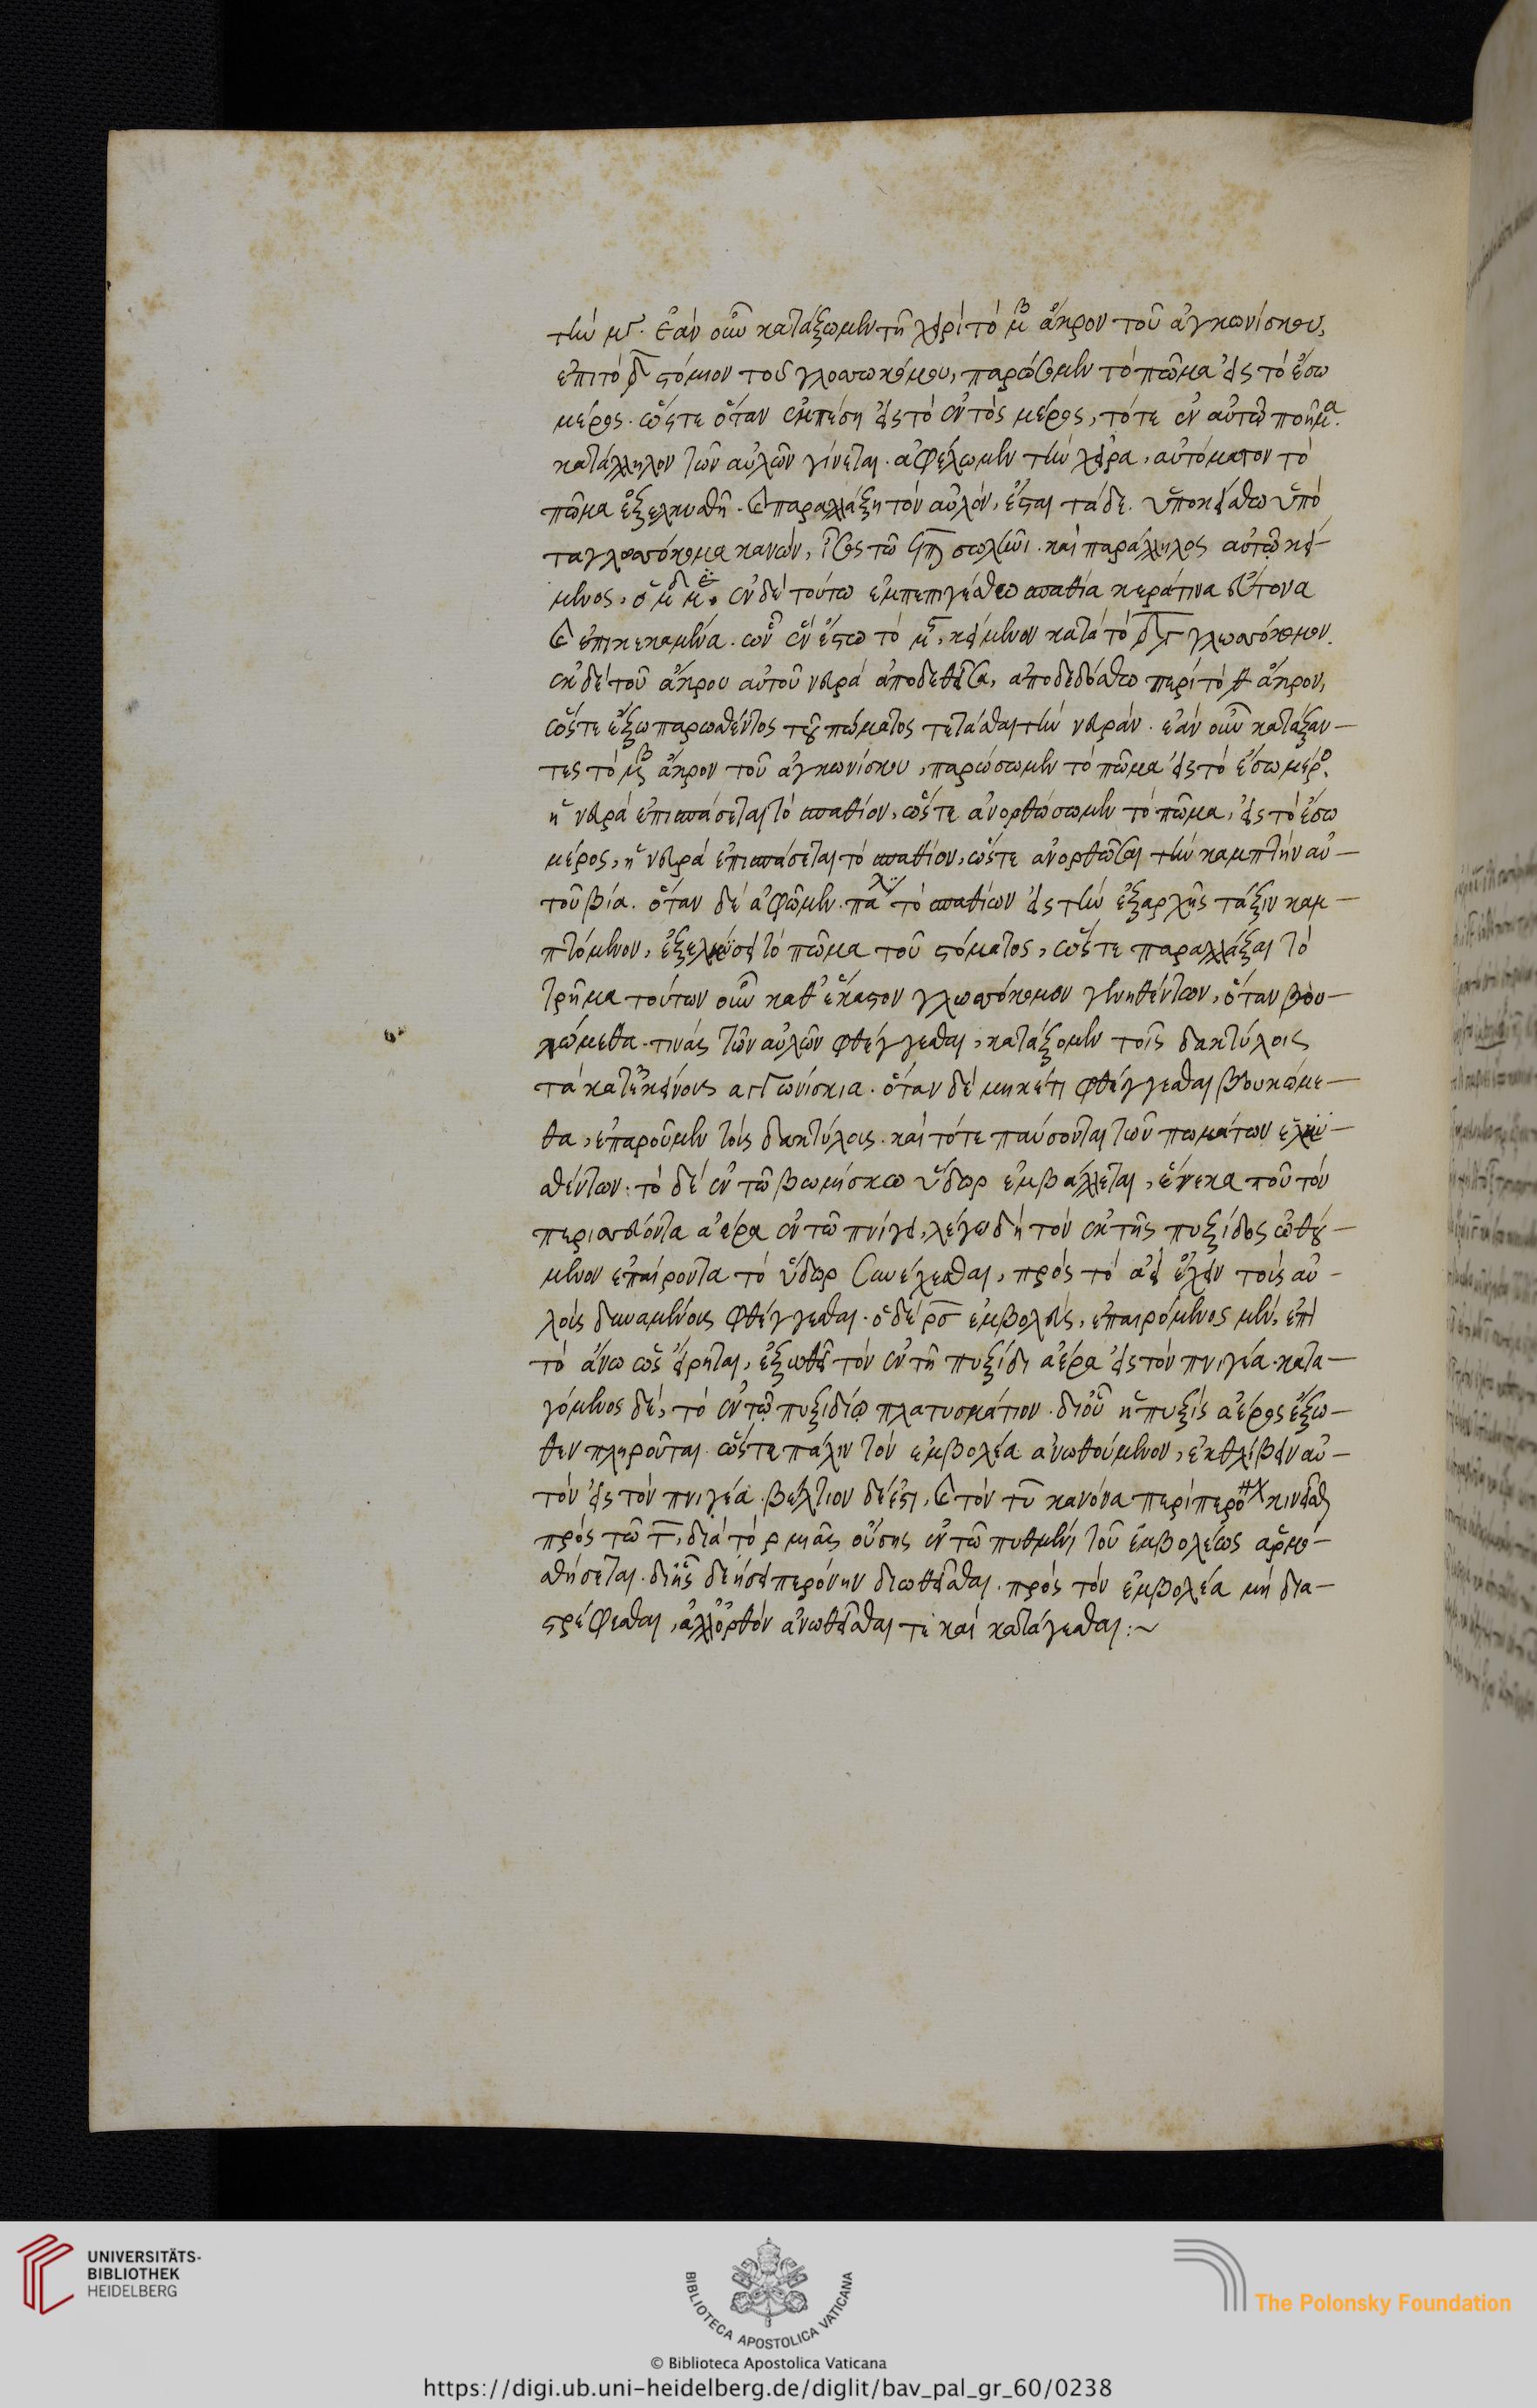 τὴν μγ. ἐὰν οὖν κατάξωμεν τῇ χειρὶ τὸ μβ ἄκρον τοῦ ἀγκωνίσκου,
ἐπὶ τὸ στόμιον τοῦ γλωσσοκόμου, παρώσομεν τὸ πῶμα εἰς τὸ ἔσω
μέρος. ὥστε ὅταν ἐμπέσῃ εἰς τὸ ἐντὸς μέρος, τότε ἐν αὐτῷ
κατάλληλον τῶν αὐλῶν γίνεται. ἀφέλωμεν τὴν χεῖρα, αὐτόματον τὸ
πῶμα ἐξελκυσθῇ. καὶ παραλλάξῃ τὸν αὐλόν, ἔσται τάδε. ὑποκείσθω ὑπὸ
τὰ γλωσσόκομα κανών, ἴσος τῷ σωλῆνι. καὶ παράλληλος αὐτῷ κεί-
μενος, ὁ ἐν δὲ τούτῳ ἐμπεπηγέσθω σπαθία κεράτινα εὔτονα
καὶ ἐπικεκαμμένα. ὧν ἓν ἔστω τὸ κείμενον κατὰ τὸ γλωσσόκομον.
ἐκ δὲ τοῦ ἄκρου αὐτοῦ νευρὰ ἀποδεθεῖσα, ἀποδεδόσθω περὶ τὸ θ ἄκρον,
ὥστε ἔξω παρωσθέντος τοῦ πώματος τετάσθαι τὴν νευράν. ἐὰν οὖν κατάξαν-
τες τὸ ἄκρον τοῦ ἀγκωνίσκου, παρώσωμεν τὸ πῶμα εἰς τὸ ἔσω μέρο.
ἡ νευρὰ ἐπισπάσεται τὸ σπαθίον, ὥστε ἀνορθώσωμεν τὸ πῶμα, εἰς τὸ ἔσω
μέρος, ἡ νευρὰ ἐπισπάσεται τὸ σπαθίον, ὥστε ἀνορθῶσαι τὴν καμπτὴν αὐ-
τοῦ βία. ὅταν δὲ ἀφῶμεν. πάλιν τὸ σπαθίων εἰς τὴν ἐξαρχῆς τάξιν καμ-
πτόμενον, ἐξελκύσει τὸ πῶμα τοῦ στόματος, ὥστε παραλλάξαι τὸ
τρῆμα τούτων οὖν καθ' ἕκαστον γλωσσόκομον γενηθέντων, ὅταν βου-
λώμεθα τινὰς τῶν αὐλῶν φθέγγεσθαι, κατάξομεν τοῖς δακτύλοις
τὰ κατ' ἐκείνους ἀγκωνίσκια. ὅταν δὲ μηκέτι φθέγγεσθαι βουλώμε-
θα, ἐπαροῦμεν τοὶς δακτύλοις. καὶ τότε παύσονται τῶν πωμάτων ἐλκυ-
σθέντων. τὸ δὲ ἐν τῷ βωμίσκῳ ὕδωρ ἐμβάλλεται, ἕνεκα ποῦ τὸν
περισσεύοντα ἀέρα ἐν τῷ πνιγεῖ, λέγω δὴ τὸν ἐκ τῆς πυξίδος ὠθού-
μενον ἐπαίροντα τὸ ὕδωρ συνέχεσθαι, πρὸς τὸ ἀεὶ ἔχειν τοὶς αὐ-
λοὶς δυναμένοις φθέγγεσθαι. ὁ δὲ ρσ ἐμβολεὺς, ἐπαιρόμενος μὲν, ἐπὶ
τὸ ἄνω ὡς εἴρηται, ἐξωθεῖ τὸν ἐν τῇ πυξίδι ἀέρα εἰς τὸν πνιγέα. κατα-
γόμενος δὲ, τὸ ἐν τῷ πυξιδίῳ πλατυσμάτιον. δι οὗ ἡ πυξὶς ἀέρος ἔξω-
θεν πληροῦται. ὥστε πάλιν τὸν ἐμβολέα ἀνωθούμενον, ἐκθλίβειν αὐ-
τὸν εἰς τὸν πνιγέα. βέλτιον δέ ἐστι, καὶ τὸν τυ κανόνα περὶ κινεῖσθαι
πρὸς τῷ τ, διὰ τὸ ρ μιᾶς οὔσης ἐν τῷ πυθμένι τοῦ ἐμβολέως ἁρμο-
σθήσεται. δι ἧς δεήσει περόνην διωθεῖσθαι. πρὸς τὸν ἐμβολέα μὴ δια-
στρέφεσθαι, ἀλλ' ὀρθὸν ἀνωθεῖσθαι τὲ καὶ κατάγεσθαι:~
UNIVERSITÄTS-
BIBLIOTHEK
HEIDELBERG
BIBLIOTECA APOSTOLICA VATICANA
© Biblioteca Apostolica Vaticana
The Polonsky Foundation
https://digi.ub.uni-heidelberg.de/diglit/bav_pal_gr_60/0238